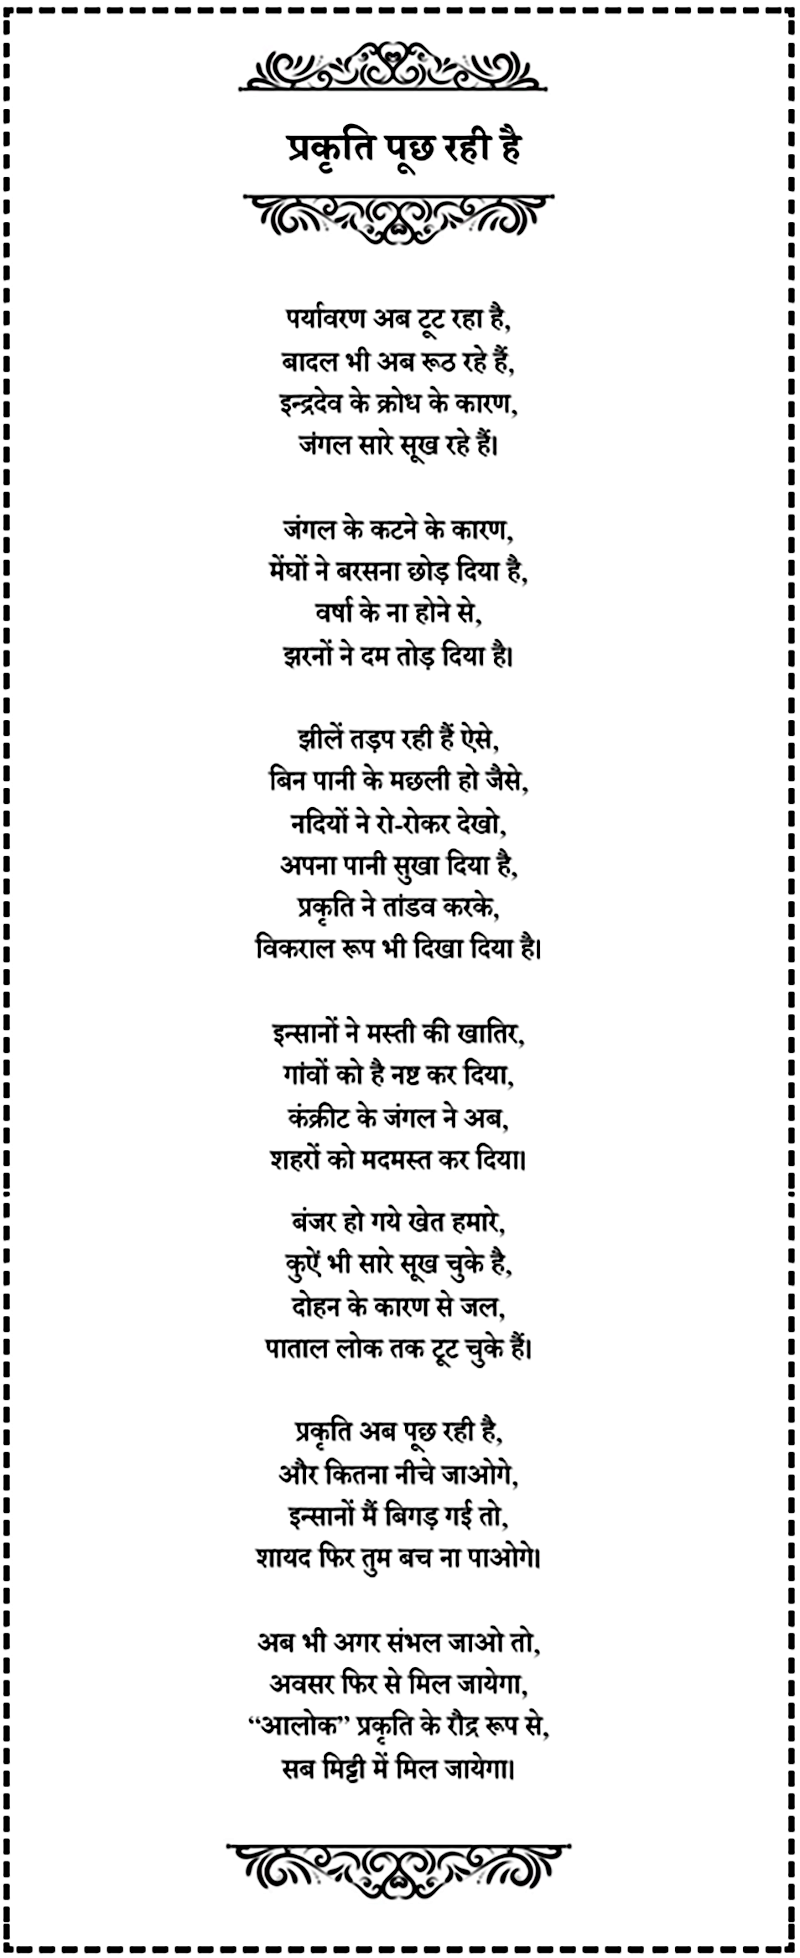 प्रकृति पूछ रही है
पर्यावरण अब टूट रहा है,
बादल भी अब रूठ रहे हैं,
इन्द्रदेव के क्रोध के कारण,
जंगल सारे सूख रहे हैं।
जंगल के कटने के कारण,
मेंघों ने बरसना छोड़ दिया है,
वर्षा के ना होने से,
झरनों ने दम तोड़ दिया है।
झीलें तड़प रही हैं ऐसे,
बिन पानी के मछली हो जैसे,
नदियों ने रो-रोकर देखो,
अपना पानी सुखा दिया है,
प्रकृति ने तांडव करके,
विकराल रूप भी दिखा दिया है।
इन्सानों ने मस्ती की खातिर,
गांवों को है नष्ट कर दिया,
कंक्रीट के जंगल ने अब,
शहरों को मदमस्त कर दिया।
बंजर हो गये खेत हमारे,
कुऐं भी सारे सूख चुके है,
दोहन के कारण से जल,
पाताल लोक तक टूट चुके हैं।
प्रकृति अब पूछ रही है,
और कितना नीचे जाओगे,
इन्सानों मैं बिगड़ गई तो,
शायद फिर तुम बच ना पाओगे।
अब भी अगर संभल जाओ तो,
अवसर फिर से मिल जायेगा,
“आलोक” प्रकृति के रौद्र रूप से,
सब मिट्टी में मिल जायेगा।